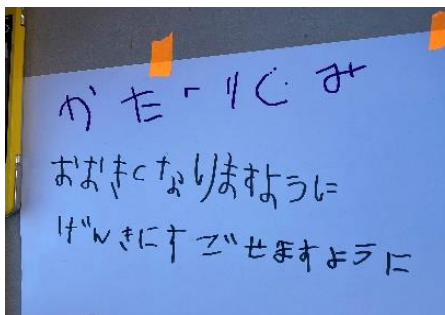 かたーりぐみ
おおきくなりますように
げんきにすごせますように